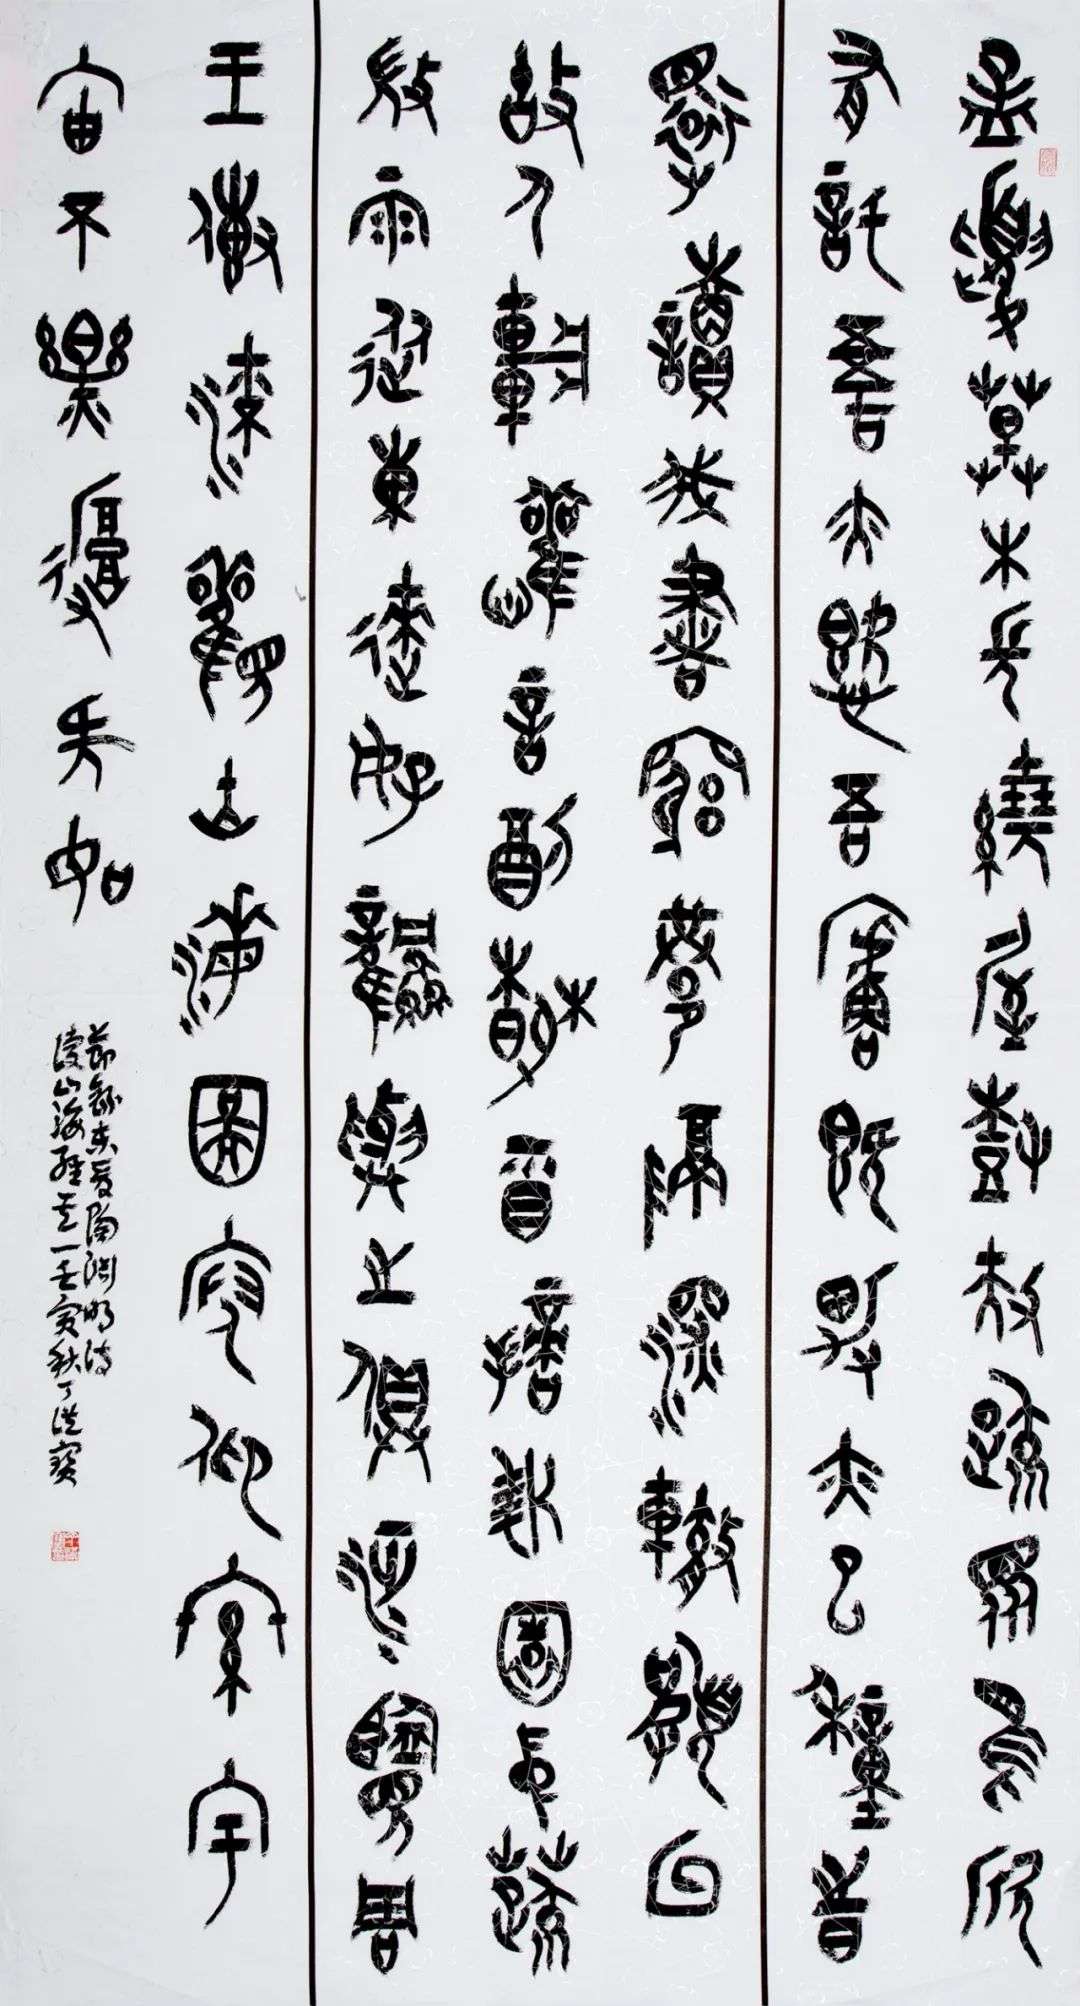 孟夏草木長繞屋樹扶疏眾鳥欣
有託吾亦愛吾廬既耕亦已種時
還讀我書窮巷隔深轍頗回
故人車歡言酌春酒摘我園中蔬
微雨從東來好風與之俱泛覽周
王傳流觀山海圖俯仰終宇
宙不樂復何如
節錄東晉陶淵明詩
讀山海經其一壬寅秋丁洪寶